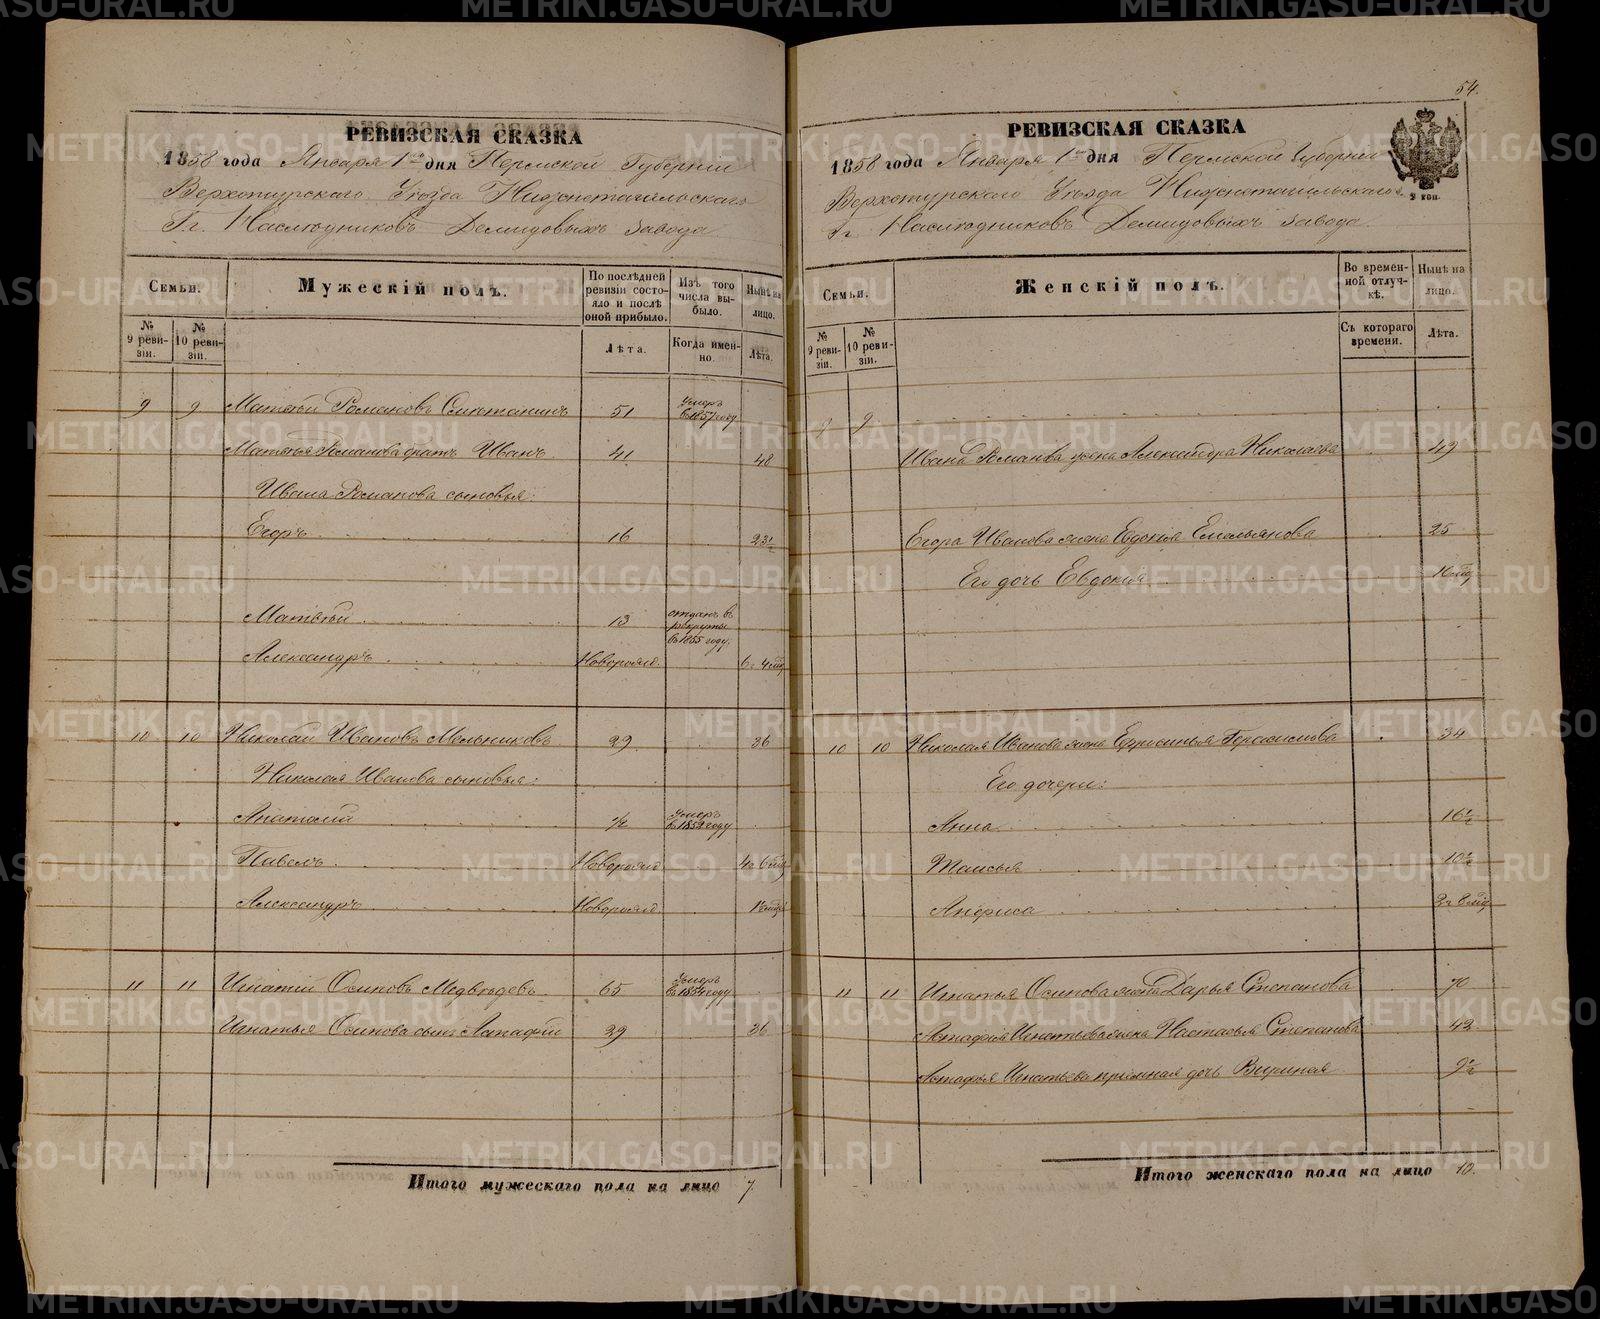 54.
РЕВИЗСКАЯ СКАЗКА
1858 года Января 1го дня Пермской Губернии
Верхотурскаго Уѣзда Нижнетагильскаго
Гг. Наслѣдниковъ Демидовыхъ завода
Семьи.
Мужескій полъ.
По послѣдней ревизіи состояло и послѣ оной прибыло.
Изъ того числа выбыло.
Нынѣ на лицо.
№ 9 ревизіи.
№ 10 ревизіи.
Лѣта.
Когда именно.
Лѣта.
9 9 Матвѣй Романовъ 51 Умеръ в 1857 году
Матвѣя Романова братъ Иванъ 41 48
Ивана Романова сыновья:
Егоръ 16 23½
Матвѣй 13 отданъ в рекруты в 1855 году.
Александръ Новорожд. 6г 4 мѣс
10 10 Николай Ивановъ Мельниковъ 29 36
Николая Иванова сыновья:
Анатолій ½ Умеръ в 1852 году
Павелъ Новорожд. 4г 6 мѣс
Александръ Новорожд.
11 11 Игнатій Осиповъ Медвѣдевъ 65 Умеръ в 1854 году
Игнатья Осипова сынъ Астафій 29 36
Итого мужескаго пола на лицо 7.
РЕВИЗСКАЯ СКАЗКА
1858 года Января 1го дня Пермской Губерніи
Верхотурскаго Уѣзда Нижнетагильскаго
Гг. Наслѣдниковъ Демидовыхъ завода
9 коп.
Семьи.
Женскій полъ.
Во временной отлучкѣ.
Нынѣ на лицо.
№ 9 ревизіи.
№ 10 ревизіи.
Съ котораго времени.
Лѣта.
9
Ивана Романова жена Александра Николаева 49
Егора Иванова жена Евдокія Емельянова 25
Его дочь Евдокія
10 10 Николая Иванова жена Ефросинья Герасимова 34
Его дочери:
Анна 16½
Таисья 10½
Анфиса 2г 8 мѣс
11 11 Игнатья Осипова жена Дарья Степанова 70
Астафія Игнатьева жена Настасья Степанова 42
Астафья Игнатьева пріемная дочь 9½
Итого женскаго пола на лицо 10.
METRIKI.GASO-URAL.RU